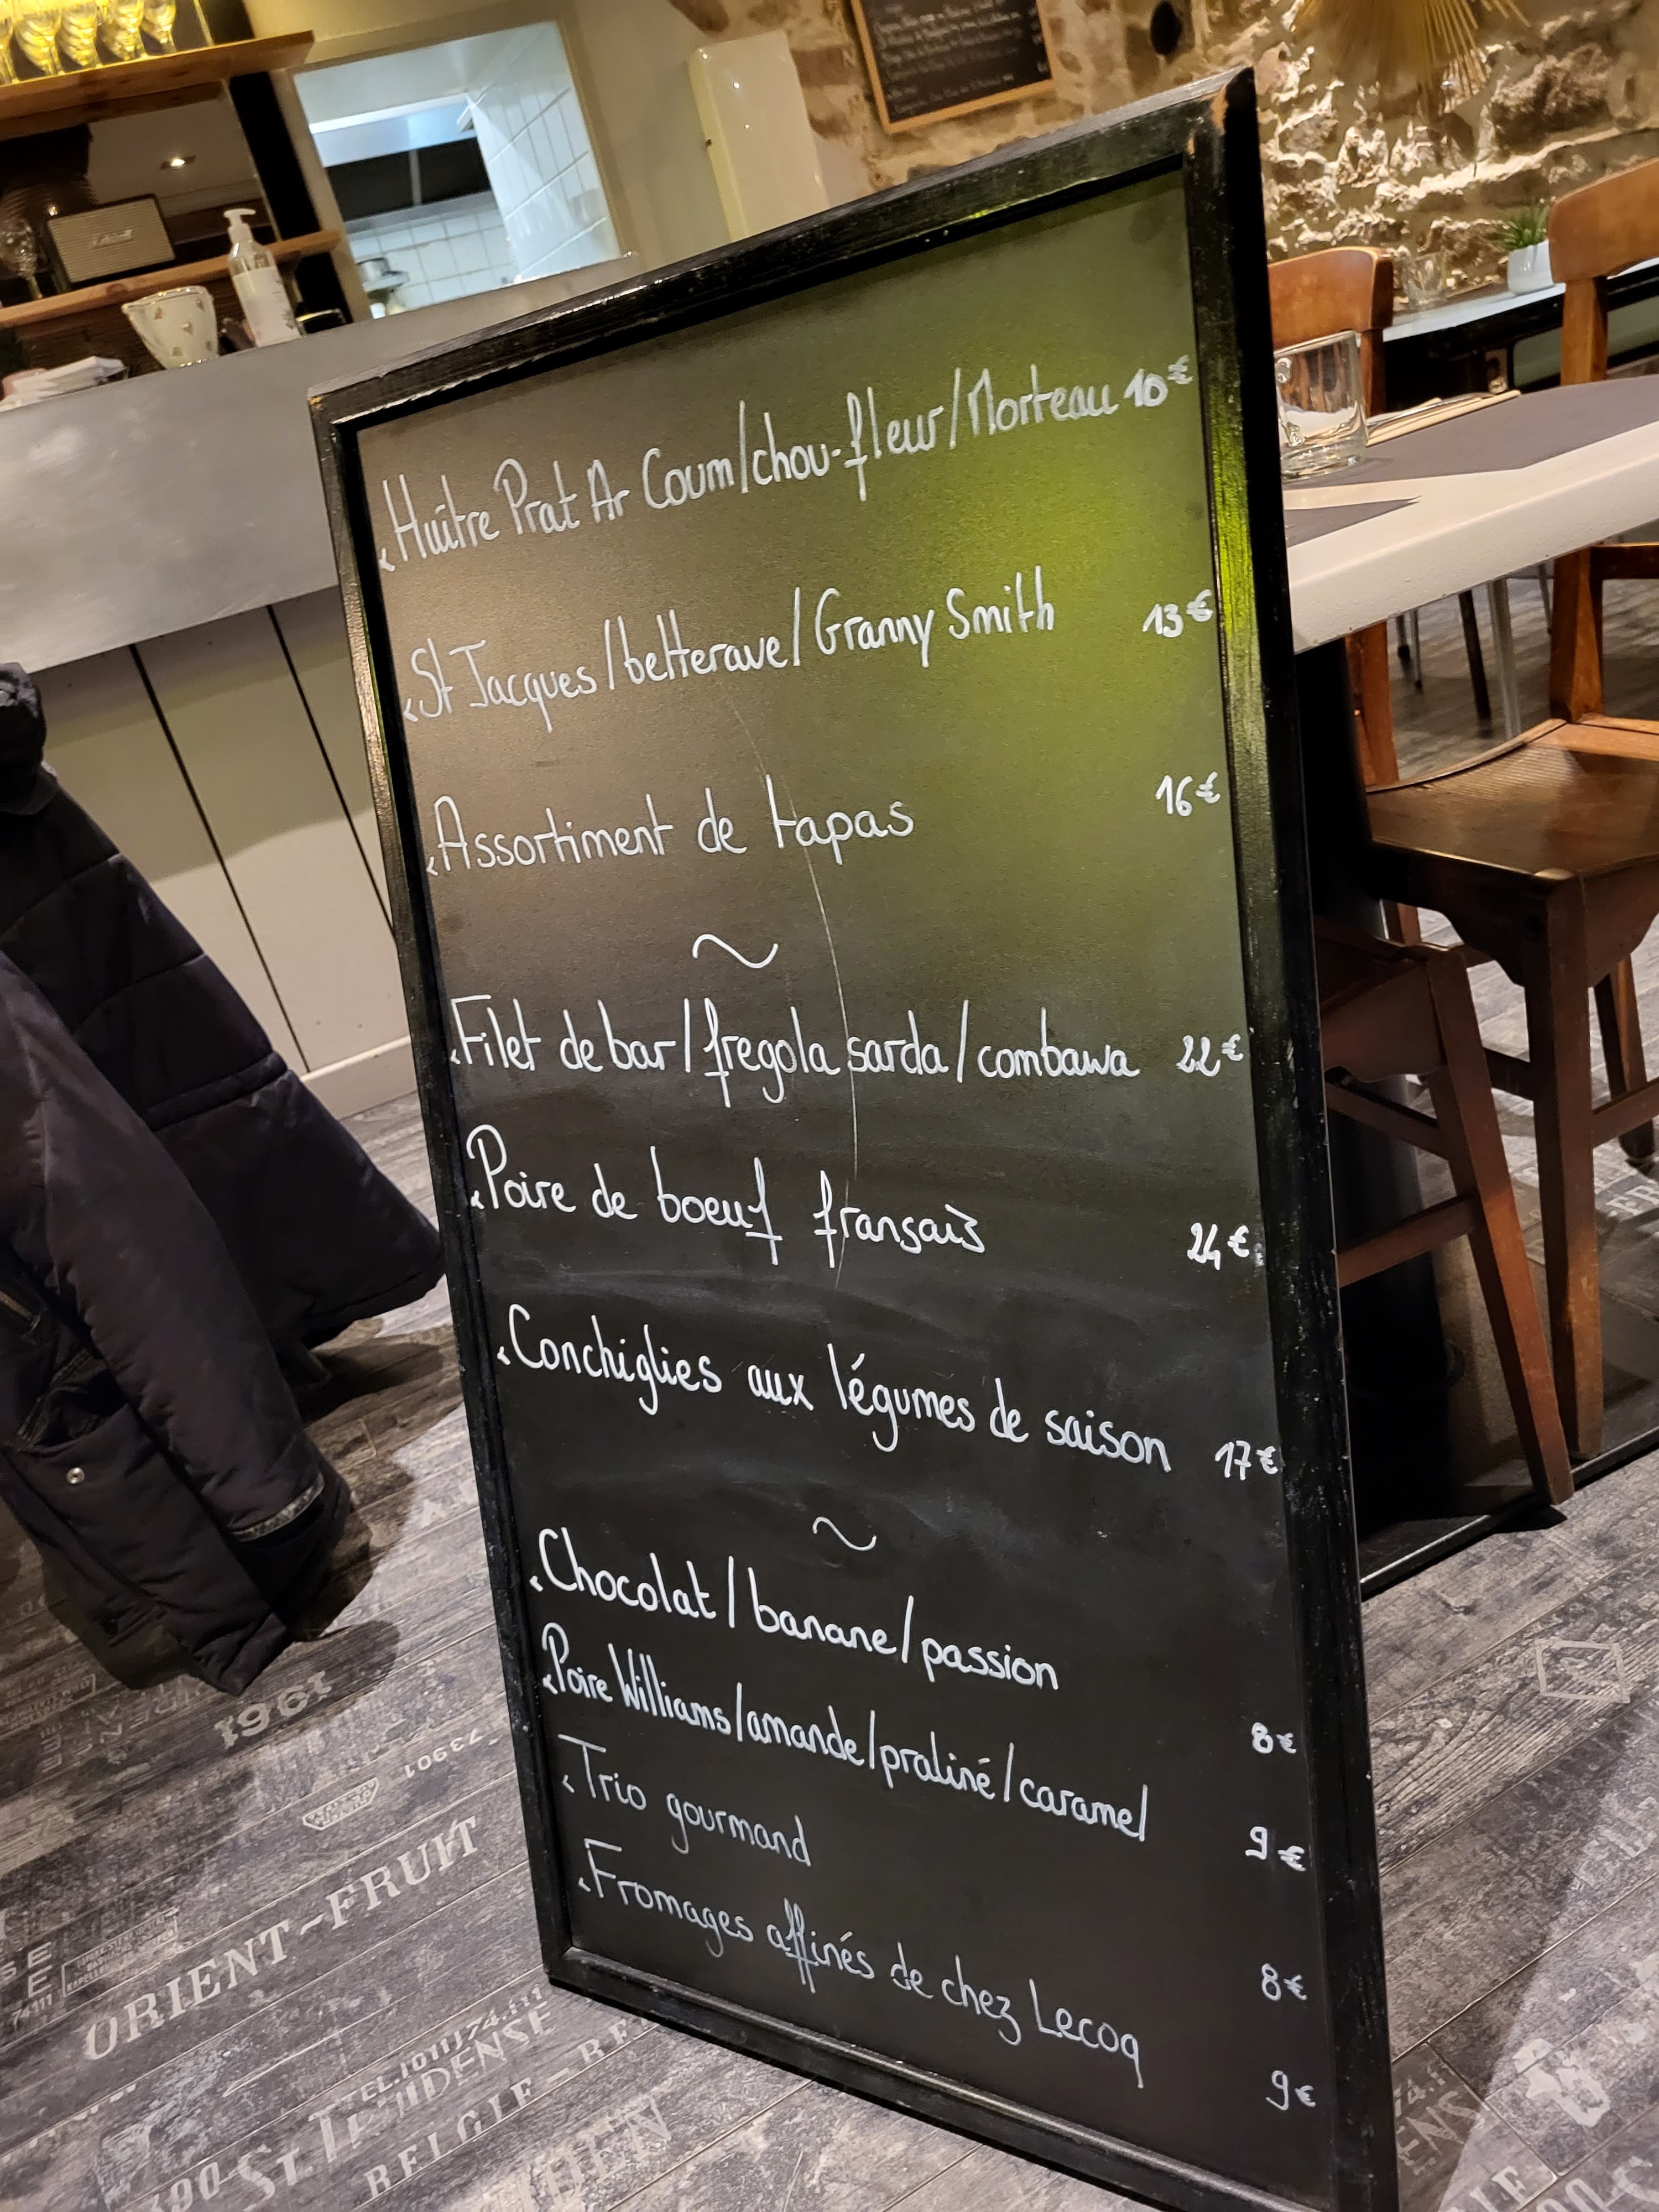 Huître Prat Ar Coum/chou-fleur/Morteau 10€
St Jacques/betterave/Granny Smith 13€
Assortiment de tapas 16€
~
Filet de bar/fregola sarda/combawa 22€
Poire de boeuf français 24€
Conchiglies aux légumes de saison 17€
~
Chocolat/banane/passion 8€
Poire Williams/amande/praliné/caramel 9€
Trio gourmand 8€
Fromages affinés de chez Lecoq 9€
1961
73901
ORIENT-FRUIT
TEL.(011)74.111
ST. TRUIDENSE
BELGIE - BE